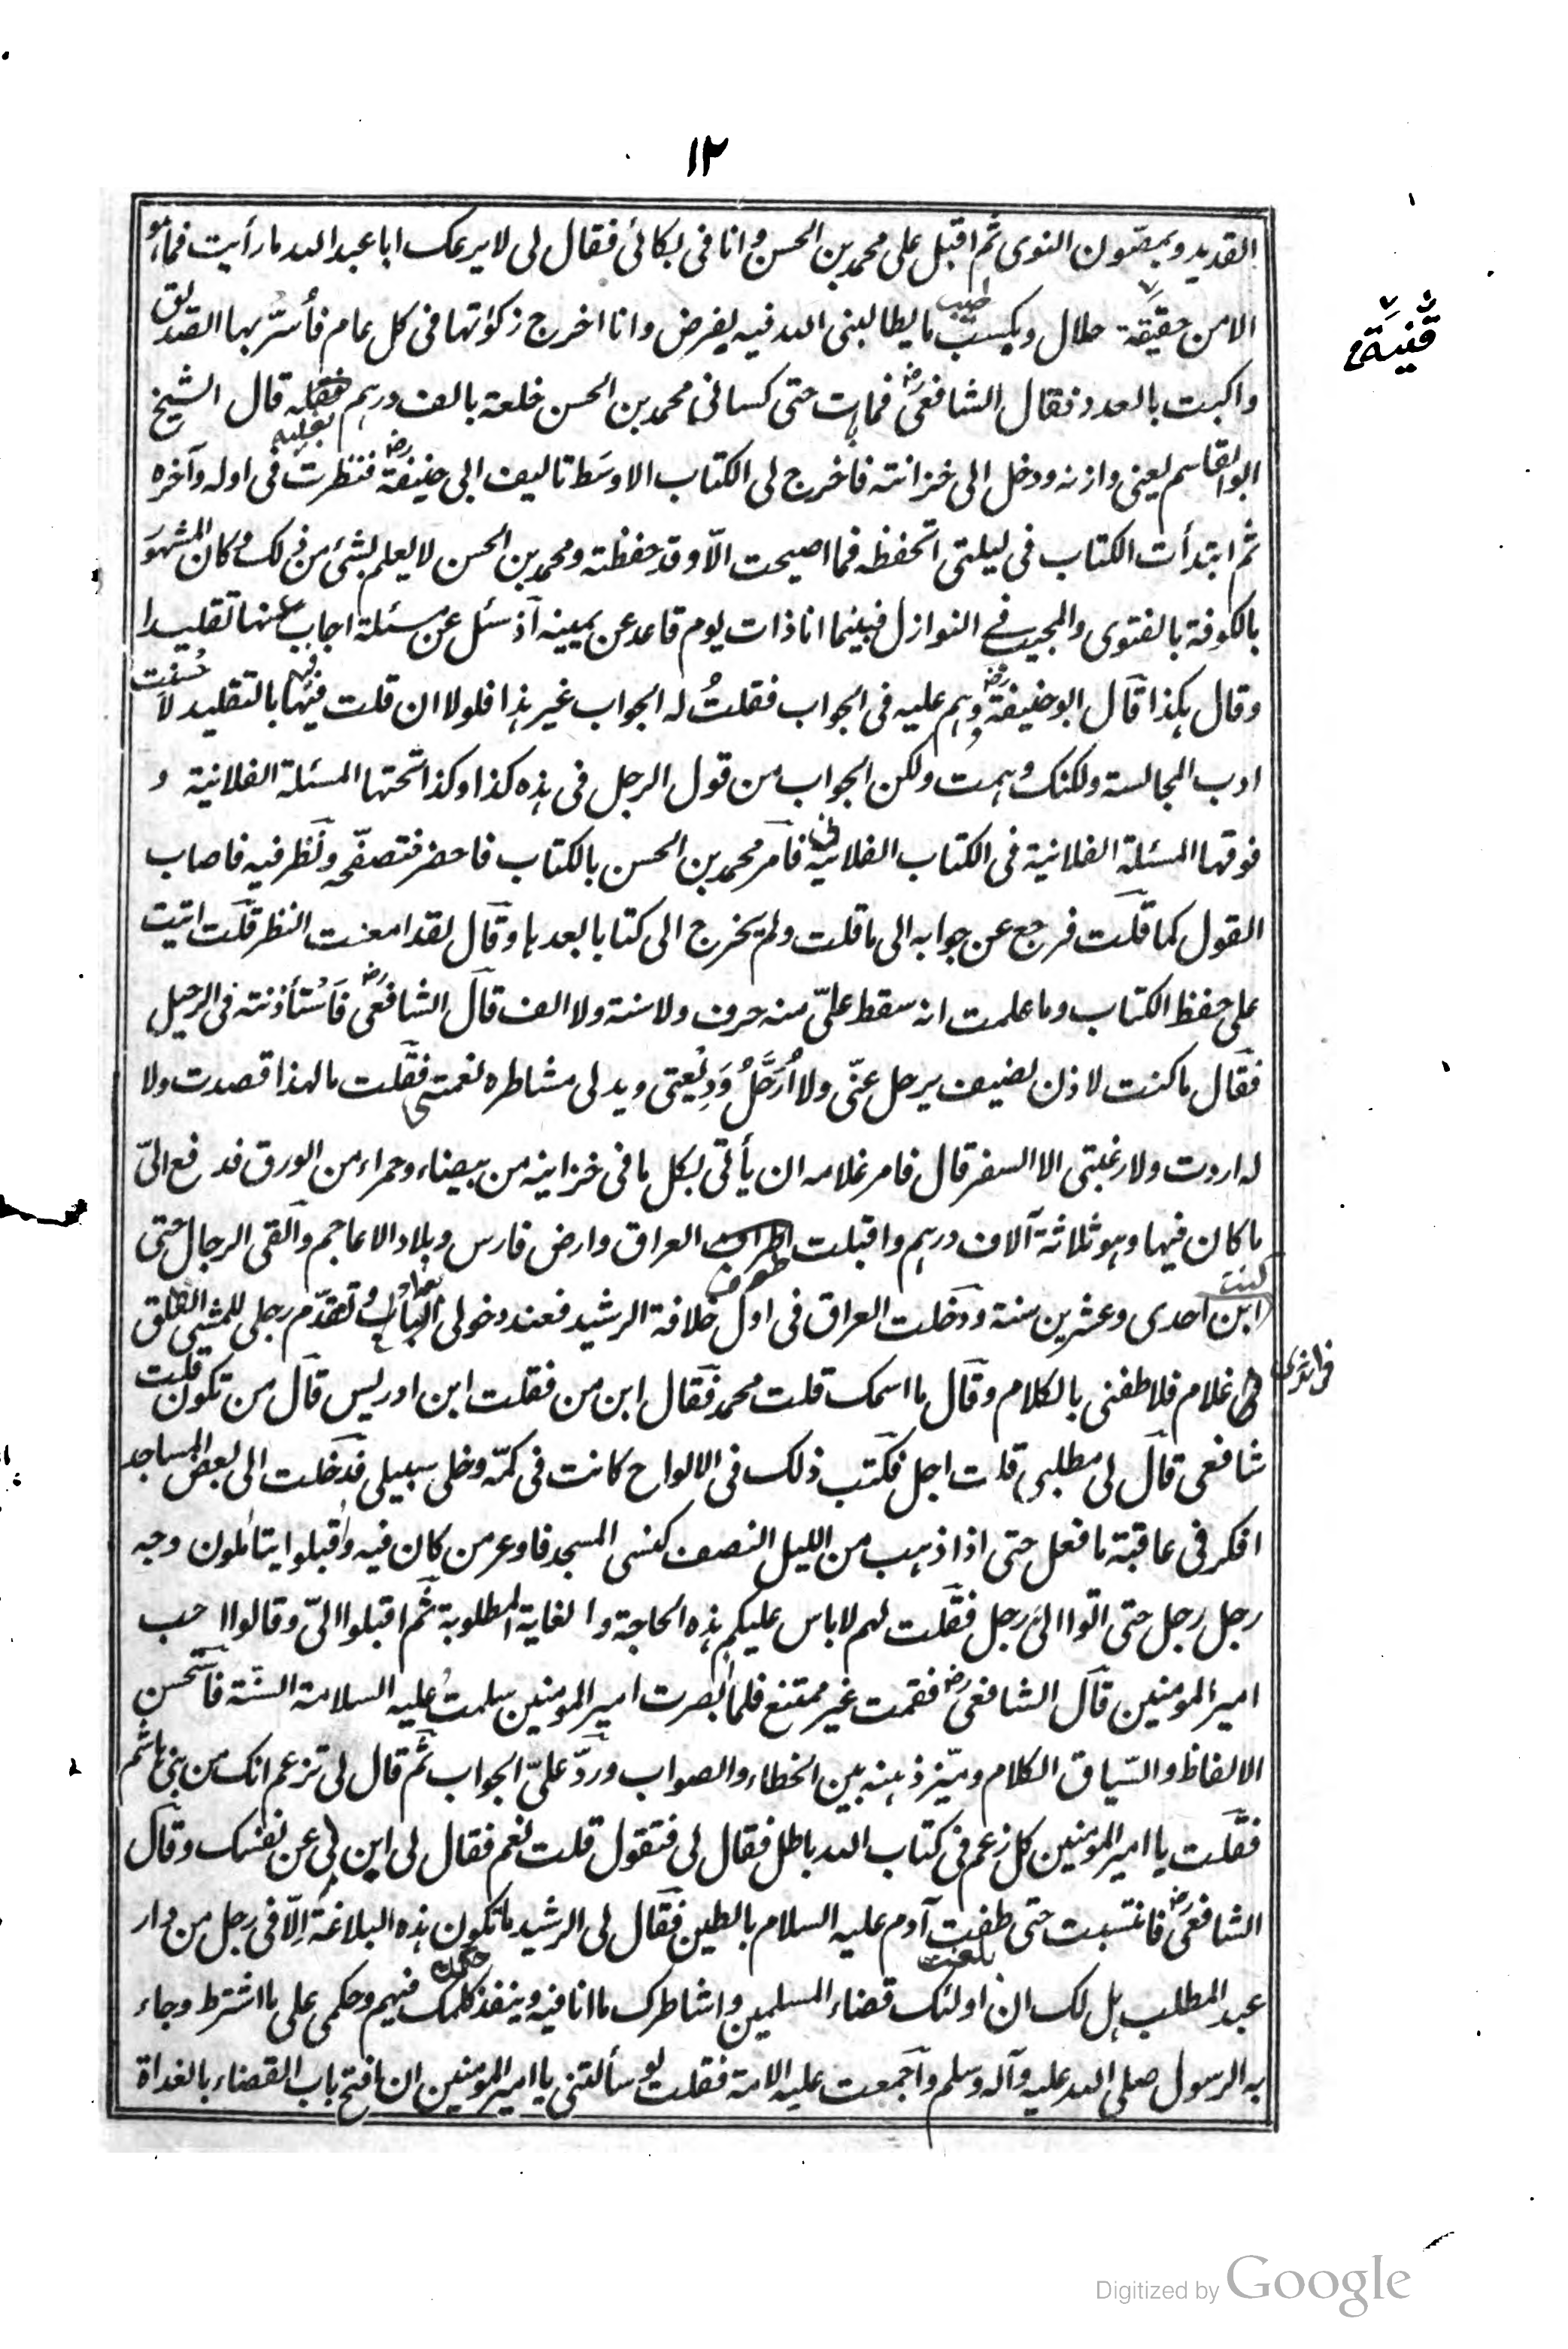 ١٢
القديد ويمصّون النوى ثم اقبل على محمد بن الحسن وانا فى بكائى فقال لى لا يرعك ابا عبد الله ما رأيت فما هو
قنية
الا من حقيقة حلال ويكسب طيب ما يطالبنى الله فيه بفرض وانا اخرج زكوتها فى كل عام فأسرّ بها الصديق
واكبت بالعدد فقال الشافعىؓ فما بت حتى كسانى محمد بن الحسن خلعة بالف درهم قال الشيخ
ابو القاسم يعنى وازنه ودخل الى خزانته فاخرج لى الكتاب الاوسَط تاليف ابى حنيفةؓ فنظرت فى اوله وآخره
ثم ابتدأت الكتاب فى ليلتى اتحفظه فما اصبحت الّا وقد حفظته ومحمد بن الحسن لا يعلم بشئ من ذلك وكان المشهوَ
بالكوفة بالفتوى والمجيب فے النوازل فبينما انا ذات يوم قاعد عن يمينه اذ سئل عن مسئلة اجاب عنها تقليدا
وقال هكذا قال ابو حنيفةؓ وهم عليه فى الجواب فقلتُ له الجواب غير هذا فلولا ان قلت فيها بالتقليد لا حسنت
ادب المجالسة ولكنك وهمت ولكن الجواب من قول الرجل فى هذه كذا وكذا تحتها المسئلة الفلانية و
فوقها المسئلة الفلانية فى الكتاب الفلانية فامر محمد بن الحسن بالكتاب فاحضر فتصفّحه ونظر فيه فاصاب
القول كما قلت فرجع عن جوابه الى ما قلت ولم يخرج الى كتابا بعدها وقال لقد امعنت النظر قلت اتيت
على حفظ الكتاب وما علمت انه سقط علىّ منه حرف ولا سنة ولا الف قال الشافعىؓ فاستأذنته فى الرحيل
فقال ما كنت لاذن لضيف يرحل عنّى ولا اُرَحَّلُ وَدِيْعتى وبدلى مشاطره نعمتى فقلت ما لهذا قصدت ولا
له اردت ولا رغبتى الا السفر قال فامر غلامه ان يأتى بكل ما فى خزاينه من بيضاء وحمراء من الورق فدفع الىّ
ما كان فيها وهو ثلاثة آلاف درهم واقبلت اطوف العراق وارض فارس وبلاد الاعاجم والقى الرجال حتى
كنت ابن احدى وعشرين سنة ودخلت العراق فى اول خلافة الرشيد فعند دخولى الباب وتقدّم رجلى للمشى
غلام فلاطفنى بالكلام وقال ما اسمك قلت محمد فقال ابن من فقلت ابن ادريس قال من تكون قلت
شافعى قال لى مطلبى قلت اجل فكتب ذلك فى الالواح كانت فى كمّه وخلى سبيلى فدخلت الى بعض المساجد
افكر فى عاقبة ما فعل حتى اذا ذهب من الليل النصف كنسى المسجد فاوعر من كان فيه واقبلوا يتاملون وجه
رجل رجل حتى اتوا الىَ رجل فقلت لهم لا باس عليكم هذه الحاجة والغاية المطلوبة ثم اقبلوا الىّ وقالوا احب
امير المومنين قال الشافعىؓ فقمت غير ممتنع فلما ابصرت امير المومنين سلمتُ عليه السلامة السّنة فاستحسن
الالفاظ والسّياق الكلام وميّز ذهنه بين الخطاء والصواب وردّ علىّ الجواب ثم قال لى تزعم انك من بنى هاشم
فقلت يا امير المومنين كل زعم فى كتاب الله باطل فقال لى فتقول قلت نعم فقال لى ابن لى عن نفسك وقال
الشافعىؓ فانتسبت حتى بلغت آدم عليه السلام بالطين فقال لى الرشيد ما تكون هذه البلاغة الّا فى رجل من دار
عبد المطلب هل لك ان اولئك قضاء المسلمين واشاطرك ما انا فيه وينفذ حكمك فيهم وحكمى على ما اشترط وجاء
به الرسول صلى الله عليه وآله وسلم واجمعت عليه الامة فقلت لو سألتنى يا امير المؤمنين ان افتح باب القضاء بالغداة
Digitized by Google